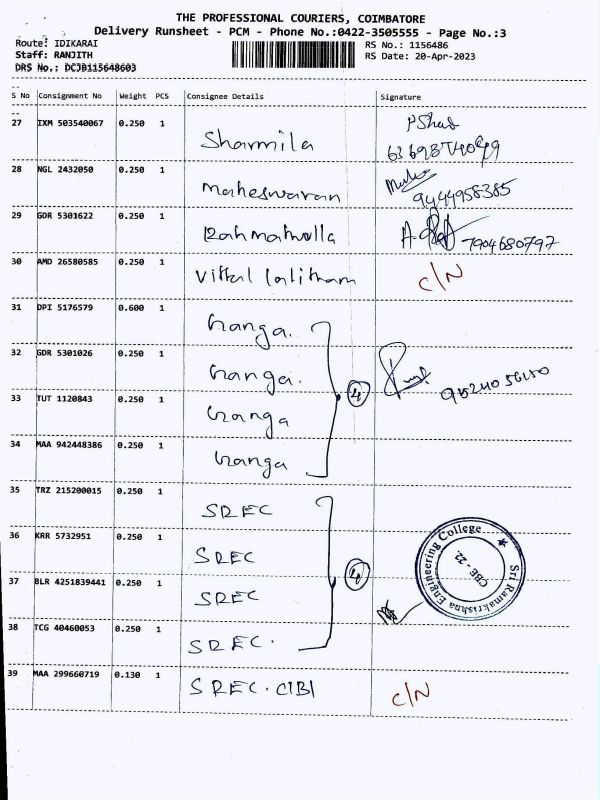 THE PROFESSIONAL COURIERS, COIMBATORE
Delivery Runsheet - PCM - Phone No.:0422-3505555 - Page No.:3
Route: IDIKARAI RS No.: 1156486
Staff: RANJITH RS Date: 20-Apr-2023
DRS No.: DCJB115648603
S No Consignment No Weight PCS Consignee Details Signature
27 IXM 503540067 0.250 1 Sharmila
28 NGL 2432050 0.250 1 Maheswaran 9444958385
29 GDR 5301622 0.250 1 Rahmatulla 7904680797
30 AMD 26580585 0.250 1 Vittal lalitham C/N
31 DPI 5176579 0.600 1 Ganga.
32 GDR 5301026 0.250 1 Ganga.
33 TUT 1120843 0.250 1 Ganga 4
34 MAA 942448386 0.250 1 Ganga
35 TRZ 215200015 0.250 1 SREC
36 KRR 5732951 0.250 1 SREC
37 BLR 4251839441 0.250 1 SREC 4
38 TCG 40460053 0.250 1 SREC.
Sri Ramakrishna Engineering College
CBE - 22.
39 MAA 299660719 0.130 1 SREC. CIBI C/N